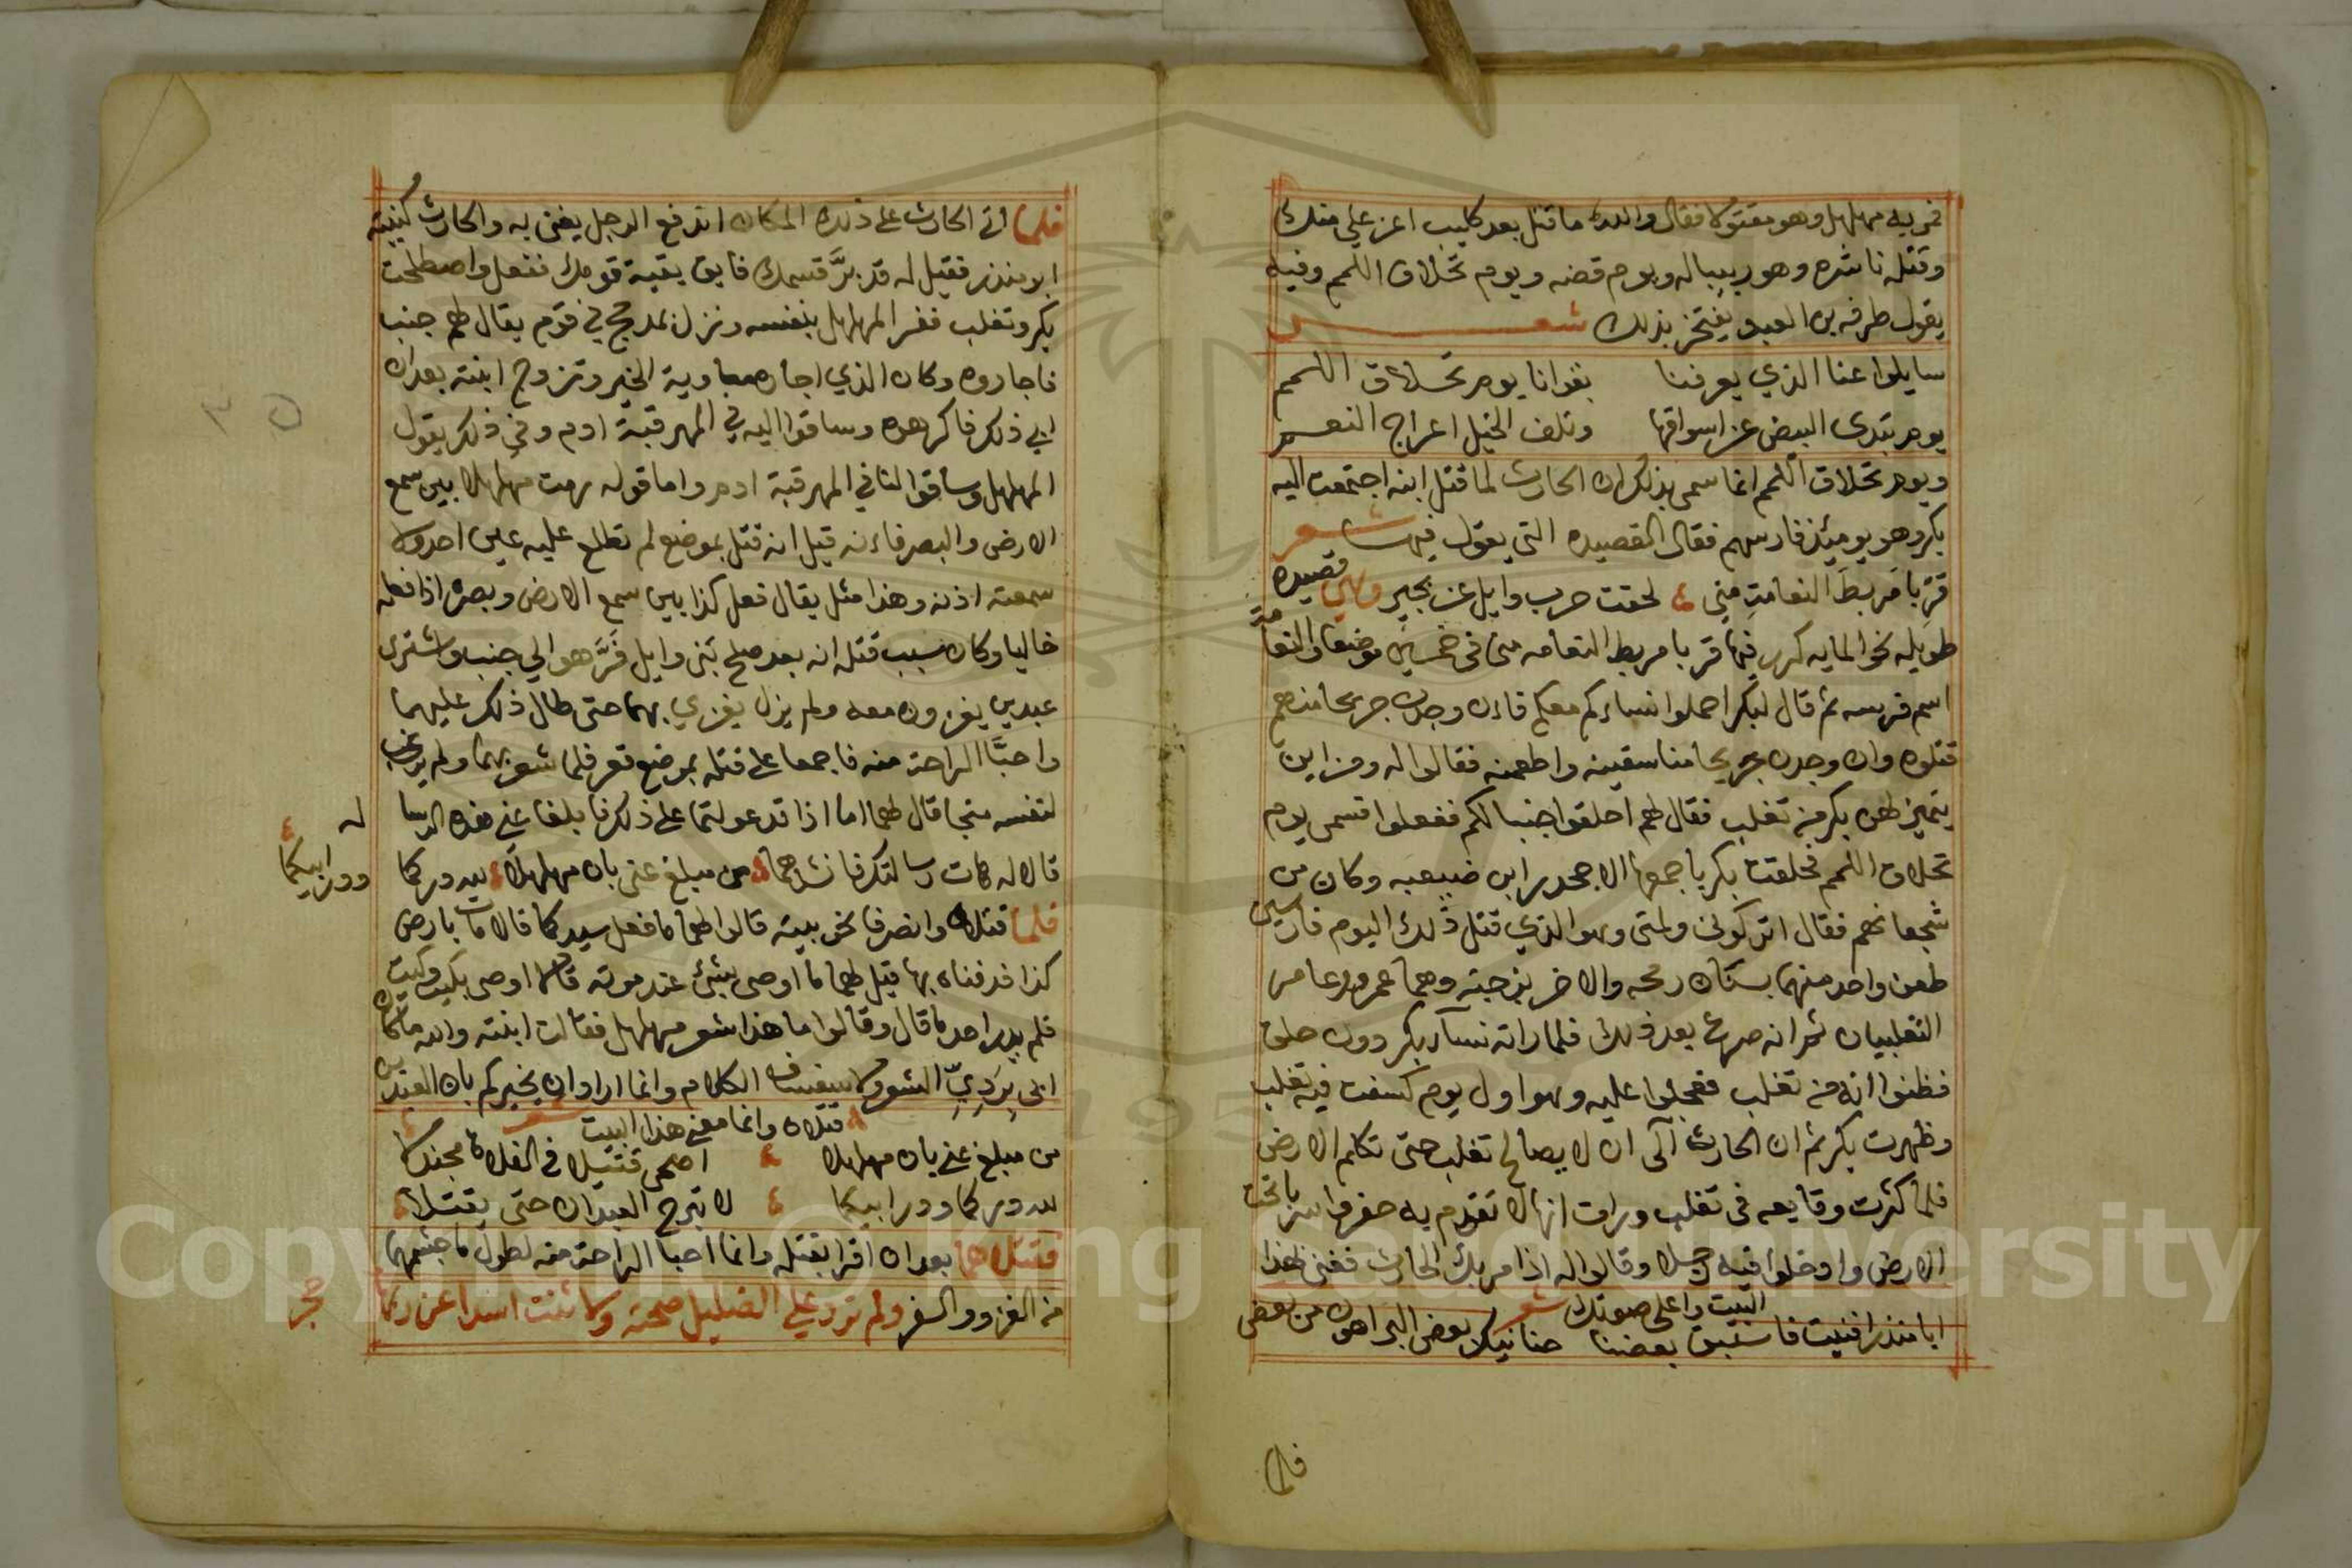 فمر به مهلهل وهو مقتولا فقال والله ما قتل بعد كليب اعز علي منك
وقتله ناشره وهو ربيبا له ويوم قضه ويوم تحلاق اللمم وفيه
يقول طرفه بن العبد يفتخر بذلك شعر
سايلوا عنا الذي يعرفنا بقوانا يوم تحلاق اللمم
يوم تبدى البيض عن اسواقها وتلف الخيل اعراج النعم
ويوم تحلاق اللمم انما سمى بذلك ان الحارث لما قتل ابنه اجتمعت اليه
بكر وهو يوميئذ فارسهم فقال القصيده التي يقول فيها شعر
قرّبا مربط النعامة مني لحقت حرب وايل عن بجير وهي قصيده
طويله نحو المايه كرر فيها قربا مربط النعامه منى في خمسين موضعا والنعامة
اسم فرسه ثم قال لبكر احملوا نساءكم معكم فاءن وجدن جريحا منهم
قتلوه وان وجدن جريحا منا سقينه واطعمنه فقالوا له ومن اين
يتميز لهن بكر من تغلب فقال لهم احلقوا جنبا لكم ففعلوا فسمى يوم
تحلاق اللمم فحلقت بكر باجمعها الا جحدر ابن ضبيعه وكان من
شجعانهم فقال اتركونى ولمتى وهو الذي قتل ذلك اليوم فارسين
طعن واحد منهما بسنان رمحه والاخر بزجته وهما عمر وعامر
التغلبيان ثم انه صرع بعد ذلك فلما راته نسآء بكر دون حلق
فظنوا انه من تغلب فعجلوا عليه وهو اول يوم كسفت فيه تغلب
وظهرت بكر ثم ان الحارث آلى ان لا يصالح تغلب حتى تكلم الارض
فلما كثرت وقايعه فى تغلب ورات انها لا تقوم به حفروا سربا تحت
الارض وادخلوا فيه رجلا وقالوا له اذا مر بك الحارث فغنى بهذا
البيت واعلى صوتك شعر
ابا منذر افنيت فاستبق بعضنا حنانيك بعض الشر اهون من بعض
فلما
فلما اتى الحارث على ذلك المكان اندفع الرجل يغنى به والحارث كنيته
ابو منذر فقيل له قد برّ قسمك فابق بقية قومك ففعل واصطلحت
بكر وتغلب ففر المهلهل بنفسه ونزل بمدحج في قوم يقال لهم جنب
فاجاروه وكان الذي اجاره معاوية الخير وتزوج ابنته بعد ان
ابي ذلك فاكرهوه وساقوا اليه في المهر قبة ادم وفي ذلك يقول
المهلهل وساقوا لنا في المهر قبة ادم واما قوله رمت مهلهلا بين سمع
الارض والبصر فاءنه قيل انه قتل بموضع لم تطلع عليه عين احد ولا
سمعته اذنه وهذا مثل يقال فعل كذا بين سمع الارض وبصره اذا فعله
خاليا وكان سبب قتله انه بعد صلح بنى وايل فَرَّ هو الى جنب واشترى
عبدين يغزون معه ولم يزل يغزي بهما حتى طال ذلك عليهما
واحبّا الراحة منه فاجمعا على قتله بموضع قفر فلما شعر بهما ولم
لنفسه منجا قال لهما اما اذا قد عولتما على ذلك فابلغا عني هذه الرسا له
قالا له هات رسالتك فانشدهما من مبلغ عنى بان مهلهلا لله دركما ودر ابيكما
فلما قتلاه وانصرفا نحو بيته قالوا لهما ما فعل سيدكما قالا مات بارض
كذا فدفناه بها قيل لهما ما اوصى بشئ عند موته قالا اوصى بكيت وكيت
فلم يدر احد ما قال وقالوا ما هذا شعر مهلهل فقالت ابنته والله ما كان
ابى بردِيِّ الشعر ولا سفساف الكلام وانما اراد ان يخبركم بان العبدين
قتلاه وانما معنى هذا البيت شعر
من مبلغ عني بان مهلهلا اضحى قتيلا في الفلاة مجندلا
لله دركما ودر ابيكما لا تبرح العبدان حتى يقتلا
فقتلا هما بعد ان اقرا بقتله وانما احبا الراحة منه لطول ما جشمهما
من الغزو والسفر ولم ترد علي الضليل صحته ولا ثنت اسدا عن ربها
حجر